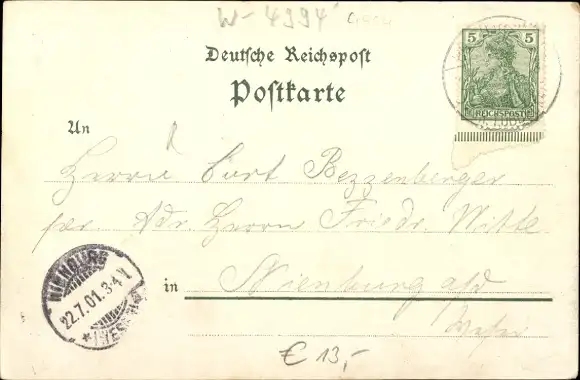 W-4994
5 5
REICHSPOST
Deutsche Reichspost
Postkarte
An
Herrn Curt Bezzenberger
per Adr. Herrn Friedr. Witte
in Nienburg a/d
Weser
NIENBURG
22.7.01. 3-4 N
* (WESER)
€ 13,-